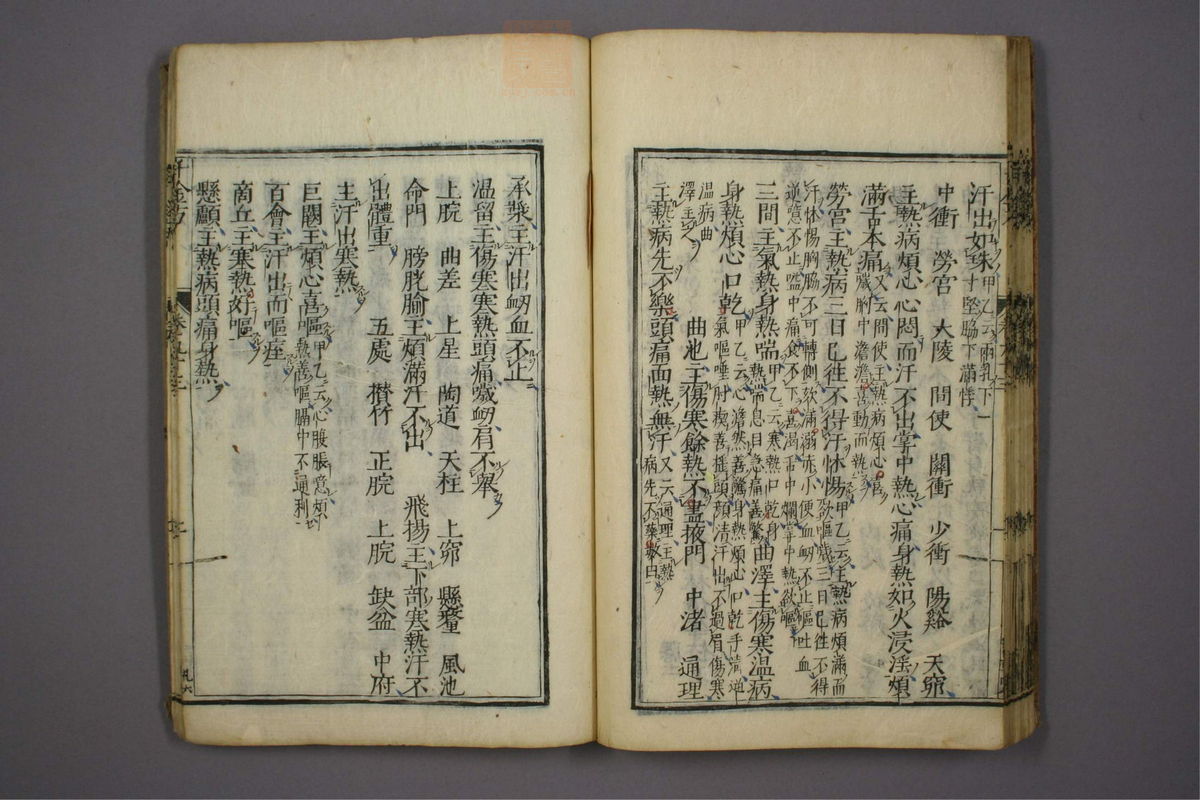 汗出如珠甲乙云兩乳下
寸堅脇下滿悸
中衝 勞宮 大陵 間使 關衝 少衝 陽谿 天窌
主熱病煩心心悶而汗不出掌中熱心痛身熱如火浸淫煩
滿舌本痛又云間使主熱病煩心
胸中澹澹善動而熱
勞宮主熱病三日已往不得汗怵惕甲乙云主熱病煩滿而
欲嘔噦三日已往不得
汗怵惕胸脇不可轉側欬滿溺赤小便血衄不止嘔吐血
逆噫不止嗌中痛食不下善渴舌中爛掌中熱欲嘔
三間主氣熱身熱喘甲乙云寒熱口乾身
熱喘息目急痛善驚曲澤主傷寒溫病
身熱煩心口乾甲乙云心澹然善驚身熱煩心口乾手清逆
氣嘔唾肘瘈善搖頭顏清汗出不過眉傷寒
溫病曲
澤主之 曲池主傷寒餘熱不盡掖門 中渚 通理
主熱病先不樂頭痛面熱無汗又云通理主熱
病先不樂數日
承漿主汗出衄血不止
溫留主傷寒寒熱頭痛噦衄肩不舉
上脘 曲差 上星 陶道 天柱 上窌 懸釐 風池
命門 膀胱腧主煩滿汗不出 飛揚主下部寒熱汗不
出體重 五處 攢竹 正脘 上脘 缺盆 中府
主汗出寒熱
巨闕主煩心喜嘔甲乙云心腹脹噫煩
熱善嘔膈中不通利
百會主汗出而嘔痓
商丘主寒熱好嘔
懸顱主熱病頭痛身熱
千金方
卷九之二
九六